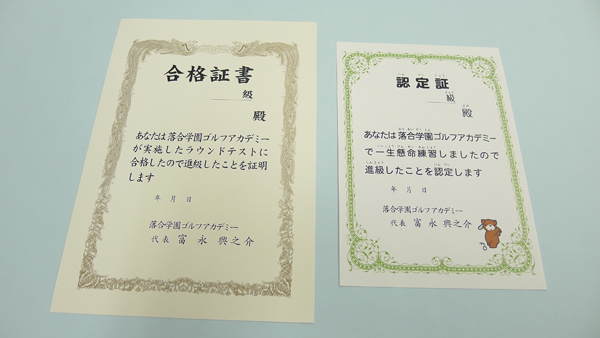 合格証書
級
殿
あなたは落合学園ゴルフアカデミー
が実施したラウンドテストに
合格したので進級したことを証明
します
年 月 日
落合学園ゴルフアカデミー
代表 富永興之介
認定証
級
殿
あなたは落合学園ゴルフアカデミー
で一生懸命練習しましたので
進級したことを認定します
年 月 日
落合学園ゴルフアカデミー
代表 富永興之介